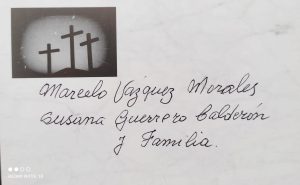 Marcelo Vázquez Morales
Susana Guerrero Calderón
y Familia.